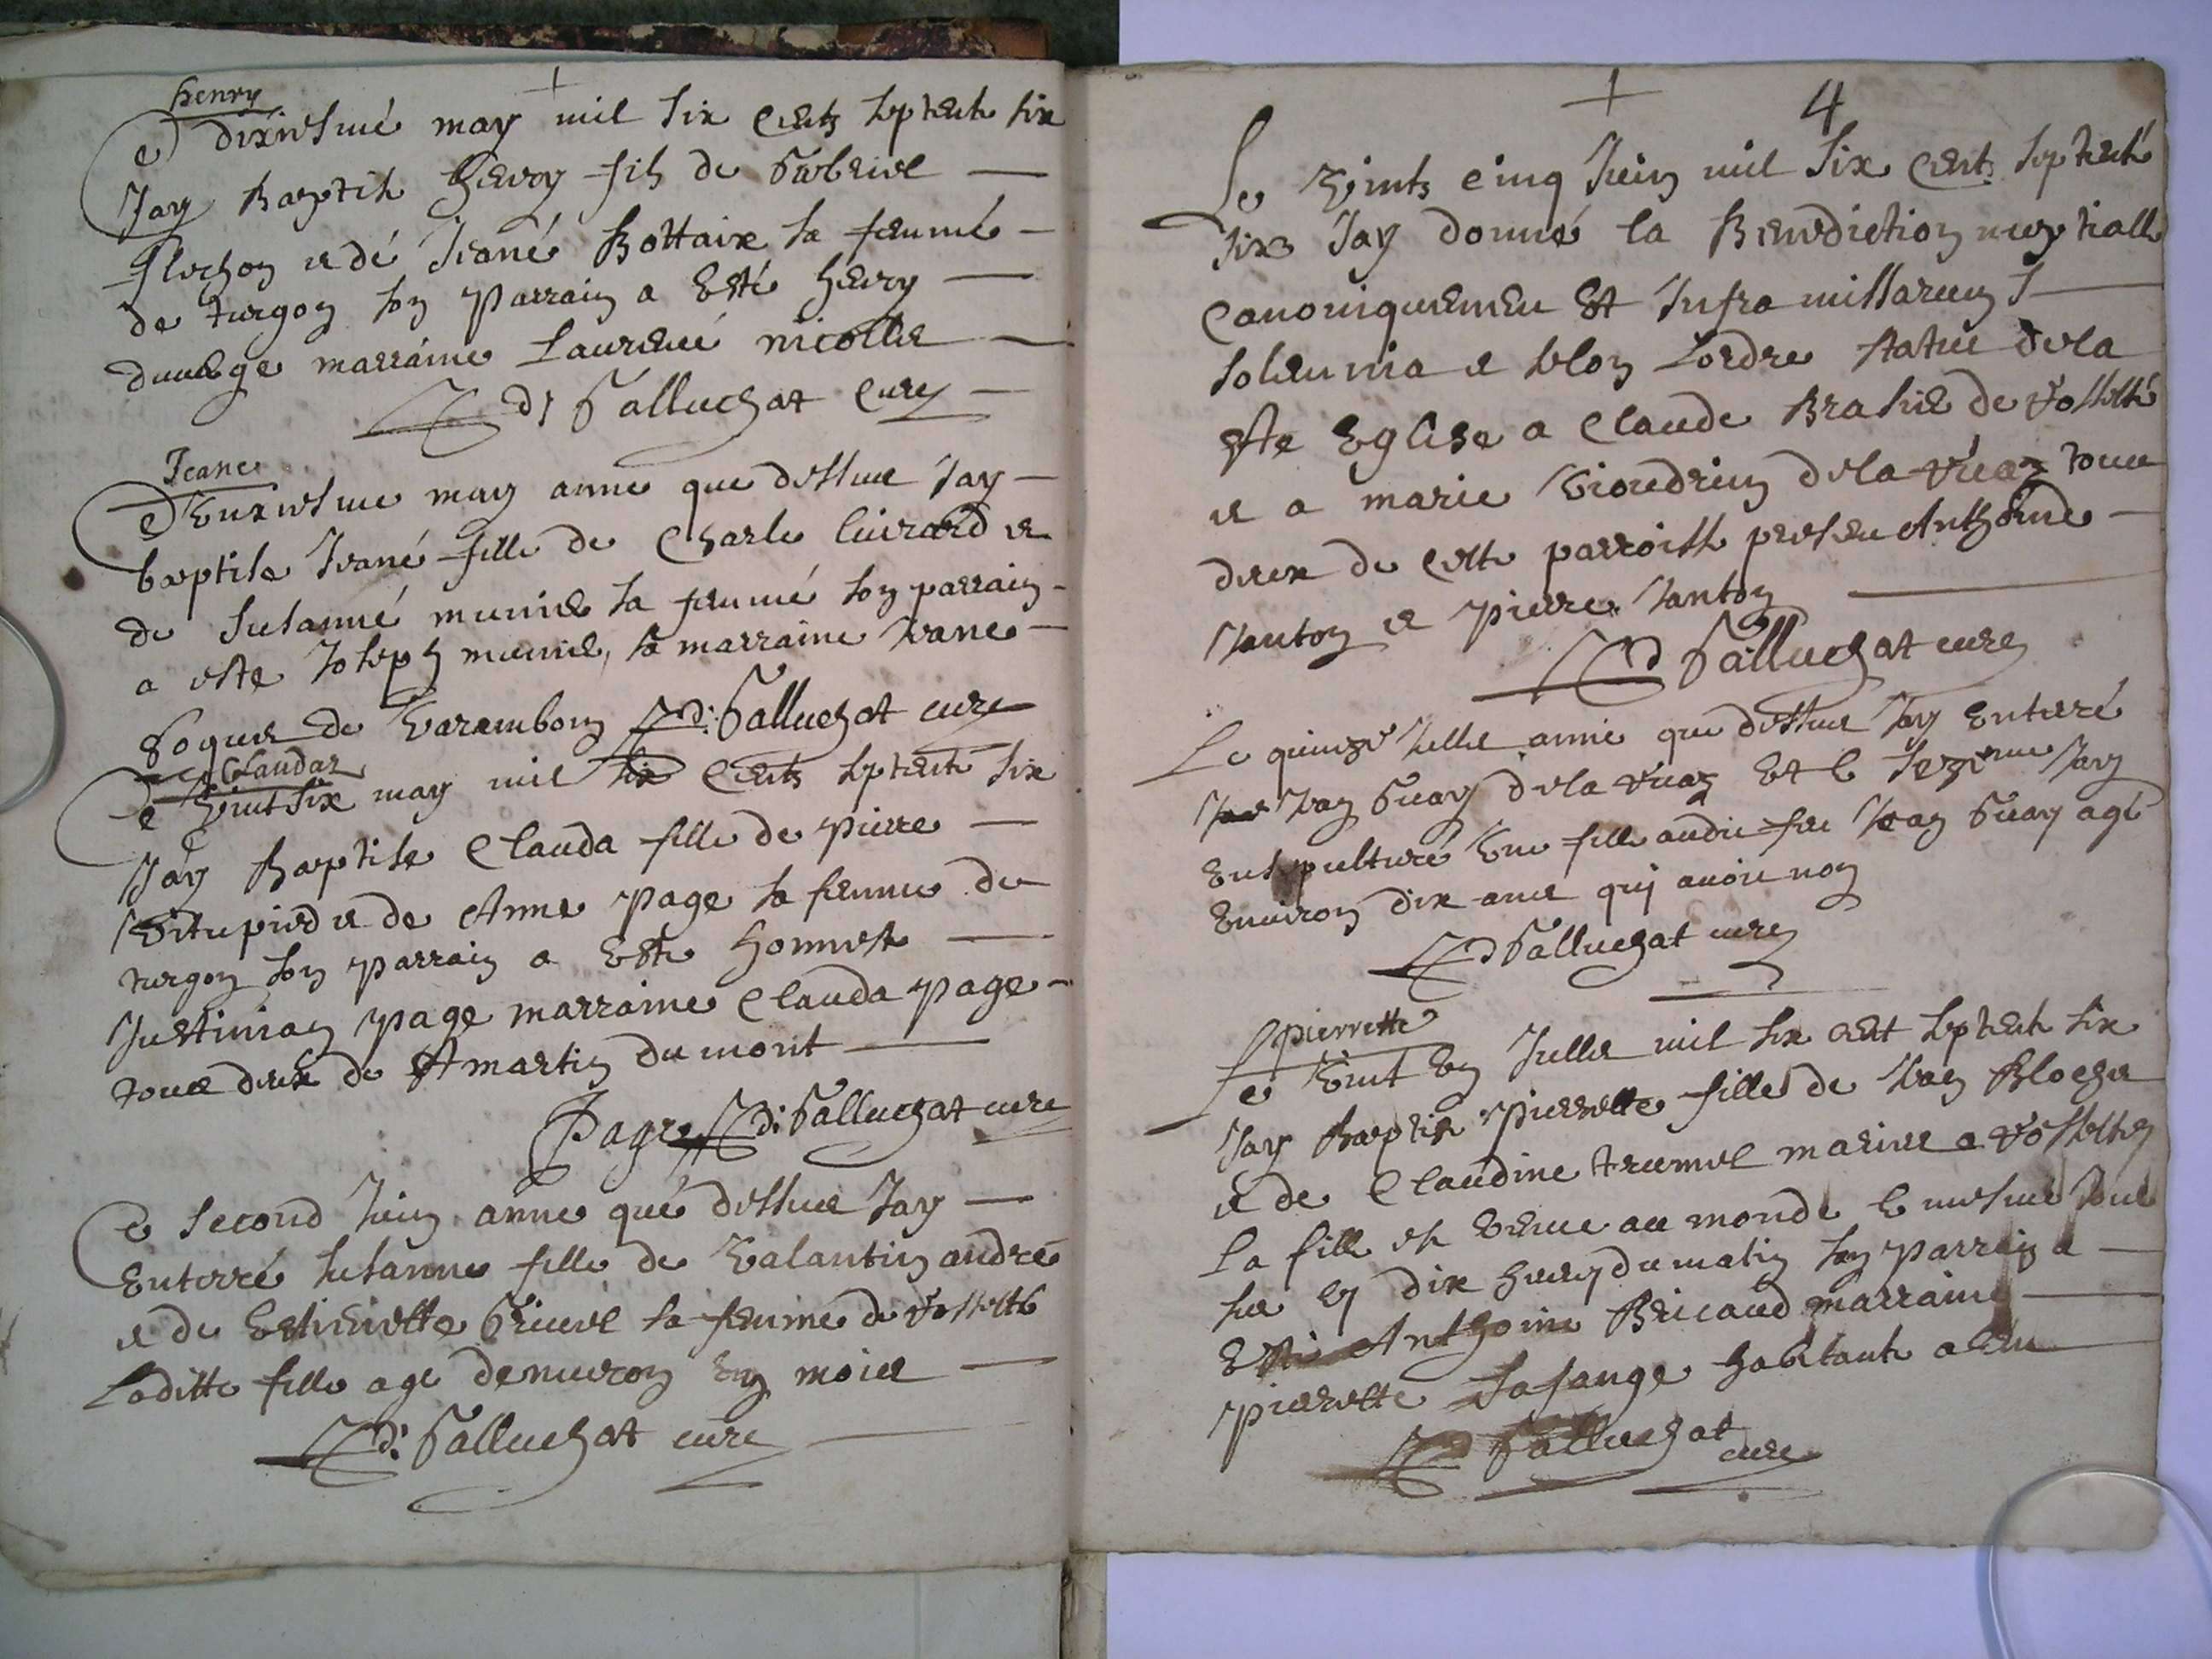 henry
Le dixiesme may mil six cents septente six
Jay baptise henry fils de Gabriel
flechon et de Jeane Bottaix sa femme
de turgon son parrain a esté henry
marraine Laurence nicolle
di Galluchat curé
Jeane
Le deuxiesme may anne que dessus Jay
baptise Jeane fille de Charle et
de Susanne munie sa femme son parrain
a este Joseph munie, sa marraine Jeane
de Varambon di Galluchat cure
Claudaz
Le vint six may mil six cents septente six
Jay baptise Clauda fille de pierre
et de Anne page sa femme de
turgon son parrain a esté honneste
Justinian page marraine Clauda page
tous deux de St martin du mont
Page di Galluchat cure
Le second Juin anne que dessus Jay
enterré susanne fille de Valantin andre
et de estiennette sa femme de vossette
Laditte fille age denviron un mois
di Galluchat cure
4
Le vints cinq Juin mil six cents septente
six Jay donné la Benediction nuptialle
canoniquement et Infra missarum s
solemnia et selon Lordre statué de la
ste Eglise a Claude Brasie de vossette
et a marie de la tous
deux de cette parroisse presen Anthoine
Janton et pierre Janton
d Galluchat cure
Le quinze Jullie anne que dessus Jay enterré
Jean Guay de la et le sezieme Jay
ensepulturé une fille audit feu Jean Guay agé
environ dix ans qui avoit nom
d Galluchat cure
pierrette
Le vint un Jullie mil six cent septente six
Jay baptise pierrette fille de Jean Bloche
et de Claudine tremel maries a vossette
la fille est venue au monde le mesme Jour
sur dix heures du matin son parrain a
esté Anthoine Bricaud marraine
pierrette Lafange habitante
d Galluchat cure